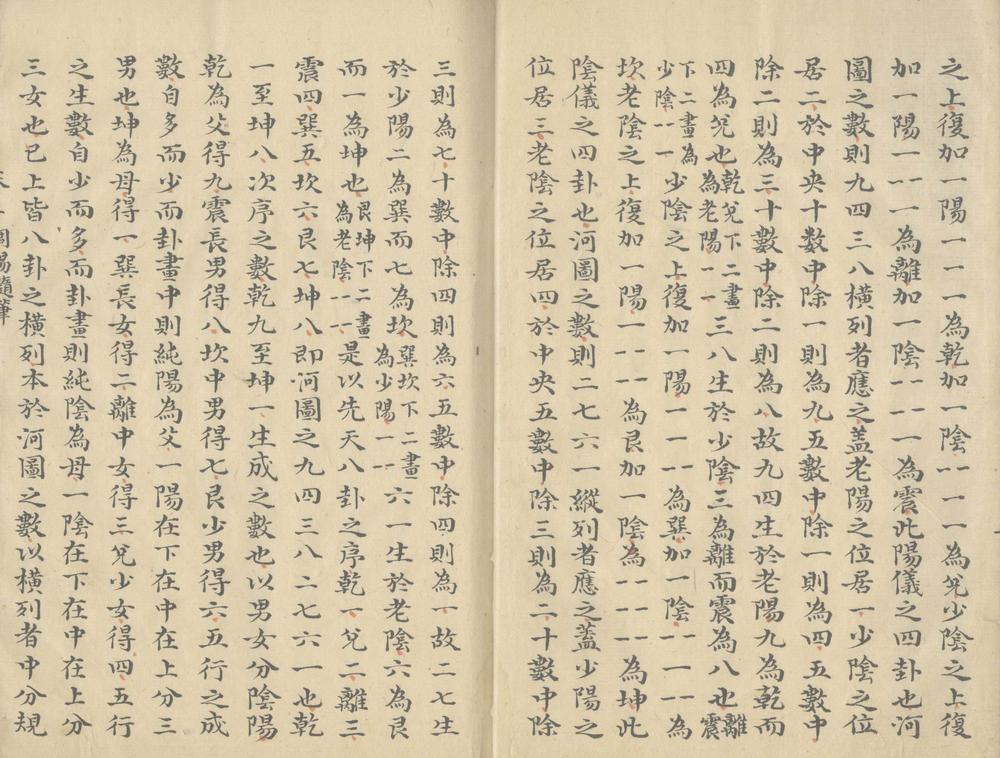 之上復加一陽一一一為乾加一陰一一一為兌少陰之上復
加一陽一一一為離加一陰一一一為震此陽儀之四卦也河
圖之數則九四三八橫列者應之蓋老陽之位居一少陰之位
居二於中央十數中除一則為九五數中除一則為四五數中
除二則為三十數中除二則為八故九四生於老陽九為乾而
四為兌也乾兌下二畫為老陽一一三八生於少陰三為離而震為八也離震
下二畫為少陰一一少陰之上復加一陽一一一為巽加一陰一一一為
坎老陰之上復加一陽一一一為艮加一陰為一一一為坤此
陰儀之四卦也河圖之數則二七六一縱列者應之蓋少陽之
位居三老陰之位居四於中央五數中除三則為二十數中除
三則為七十數中除四則為六五數中除四則為一故二七生
於少陽二為巽而七為坎巽坎下二畫為少陽一一六一生於老陰六為艮
而一為坤也艮坤下二畫為老陰一一是以先天八卦之序乾一兌二離三
震四巽五坎六艮七坤八即河圖之九四三八二七六一也乾
一至坤八次序之數乾九至坤一生成之數也以男女分陰陽
乾為父得九震長男得八坎中男得七艮少男得六五行之成
數自多而少而卦畫中則純陽為父一陽在下在中在上分三
男也坤為母得一巽長女得二離中女得三兌少女得四五行
之生數自少而多而卦畫則純陰為母一陰在下在中在上分
三女也已上皆八卦之橫列本於河圖之數以橫列者中分規